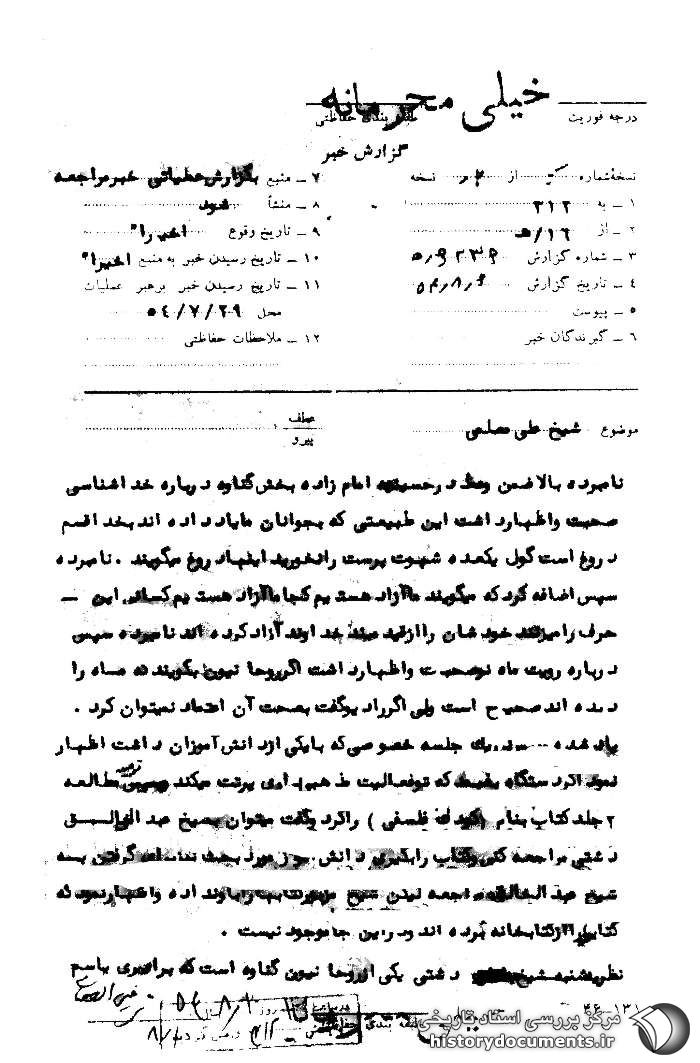 خیلی محرمانه
درجه فوریت
طبقه بندی حفاظتی
گزارش خبر
نسخه شماره از ۲ نسخه
۱ – به ۳۱۲
۲ – از ۱۶/ه
۳ – شماره گزارش
۴ – تاریخ گزارش
۵ – پیوست
۶ – گیرندگان خبر
۷ – منبع بگزارش عملیاتی خبر مراجعه
۸ – منشأ شود
۹ – تاریخ وقوع اخیرا"
۱۰ – تاریخ رسیدن خبر به منبع اخیرا"
۱۱ – تاریخ رسیدن خبر برهبر عملیات
محل ۵۴/۷/۲۹
۱۲ – ملاحظات حفاظتی
موضوع شیخ علی
عطف
پیرو
نامبرده بالا ضمن وعظ در حسینیه امام زاده بخش گناوه درباره خداشناسی
صحبت واظهارداشت این طبیعتی که بجوانان ما یاد داده اند بخدا قسم
دروغ است گول یکعده شهوت پرست را نخورید اینها دروغ میگویند . نامبرده
سپس اضافه کرد که میگویند ما آزاد هستیم کجا ما آزاد هستیم کسانی این –
حرف را میزنند خودشان را از قید و بند خداوند آزاد کرده اند نامبرده سپس
درباره رویت ماه نو صحبت واظهارداشت اگر روحانیون بگویند که ماه را
دیده اند صحیح است ولی اگر رادیو گفت بصحت آن اعتماد نمیتوان کرد .
یاد شده در یک جلسه خصوصی که با یکی از دانش آموزان داشت اظهار
نمود اگر دستگاه بفهمد که تو فعالیت مذهبی داری پرتت میکند توصیه مطالعه
۲ جلد کتاب بنام (کودک فلسفی) را کرد و گفت میتوان به شیخ عبدالخالق
دشتی مراجعه کنی و کتاب را بگیری دانش آموز مورد بحث گرفتن به
شیخ عبدالخالق مراجعه لیکن شیخ کتابها را باو نداده واظهار نموده
کتاب را از کتابخانه برده اند و در این جا موجود نیست .
نظریه شنبه شیخ دشتی یکی از روحانیون گناوه است که برادری باسم
مرکز بررسی اسناد تاریخی
historydocuments.ir